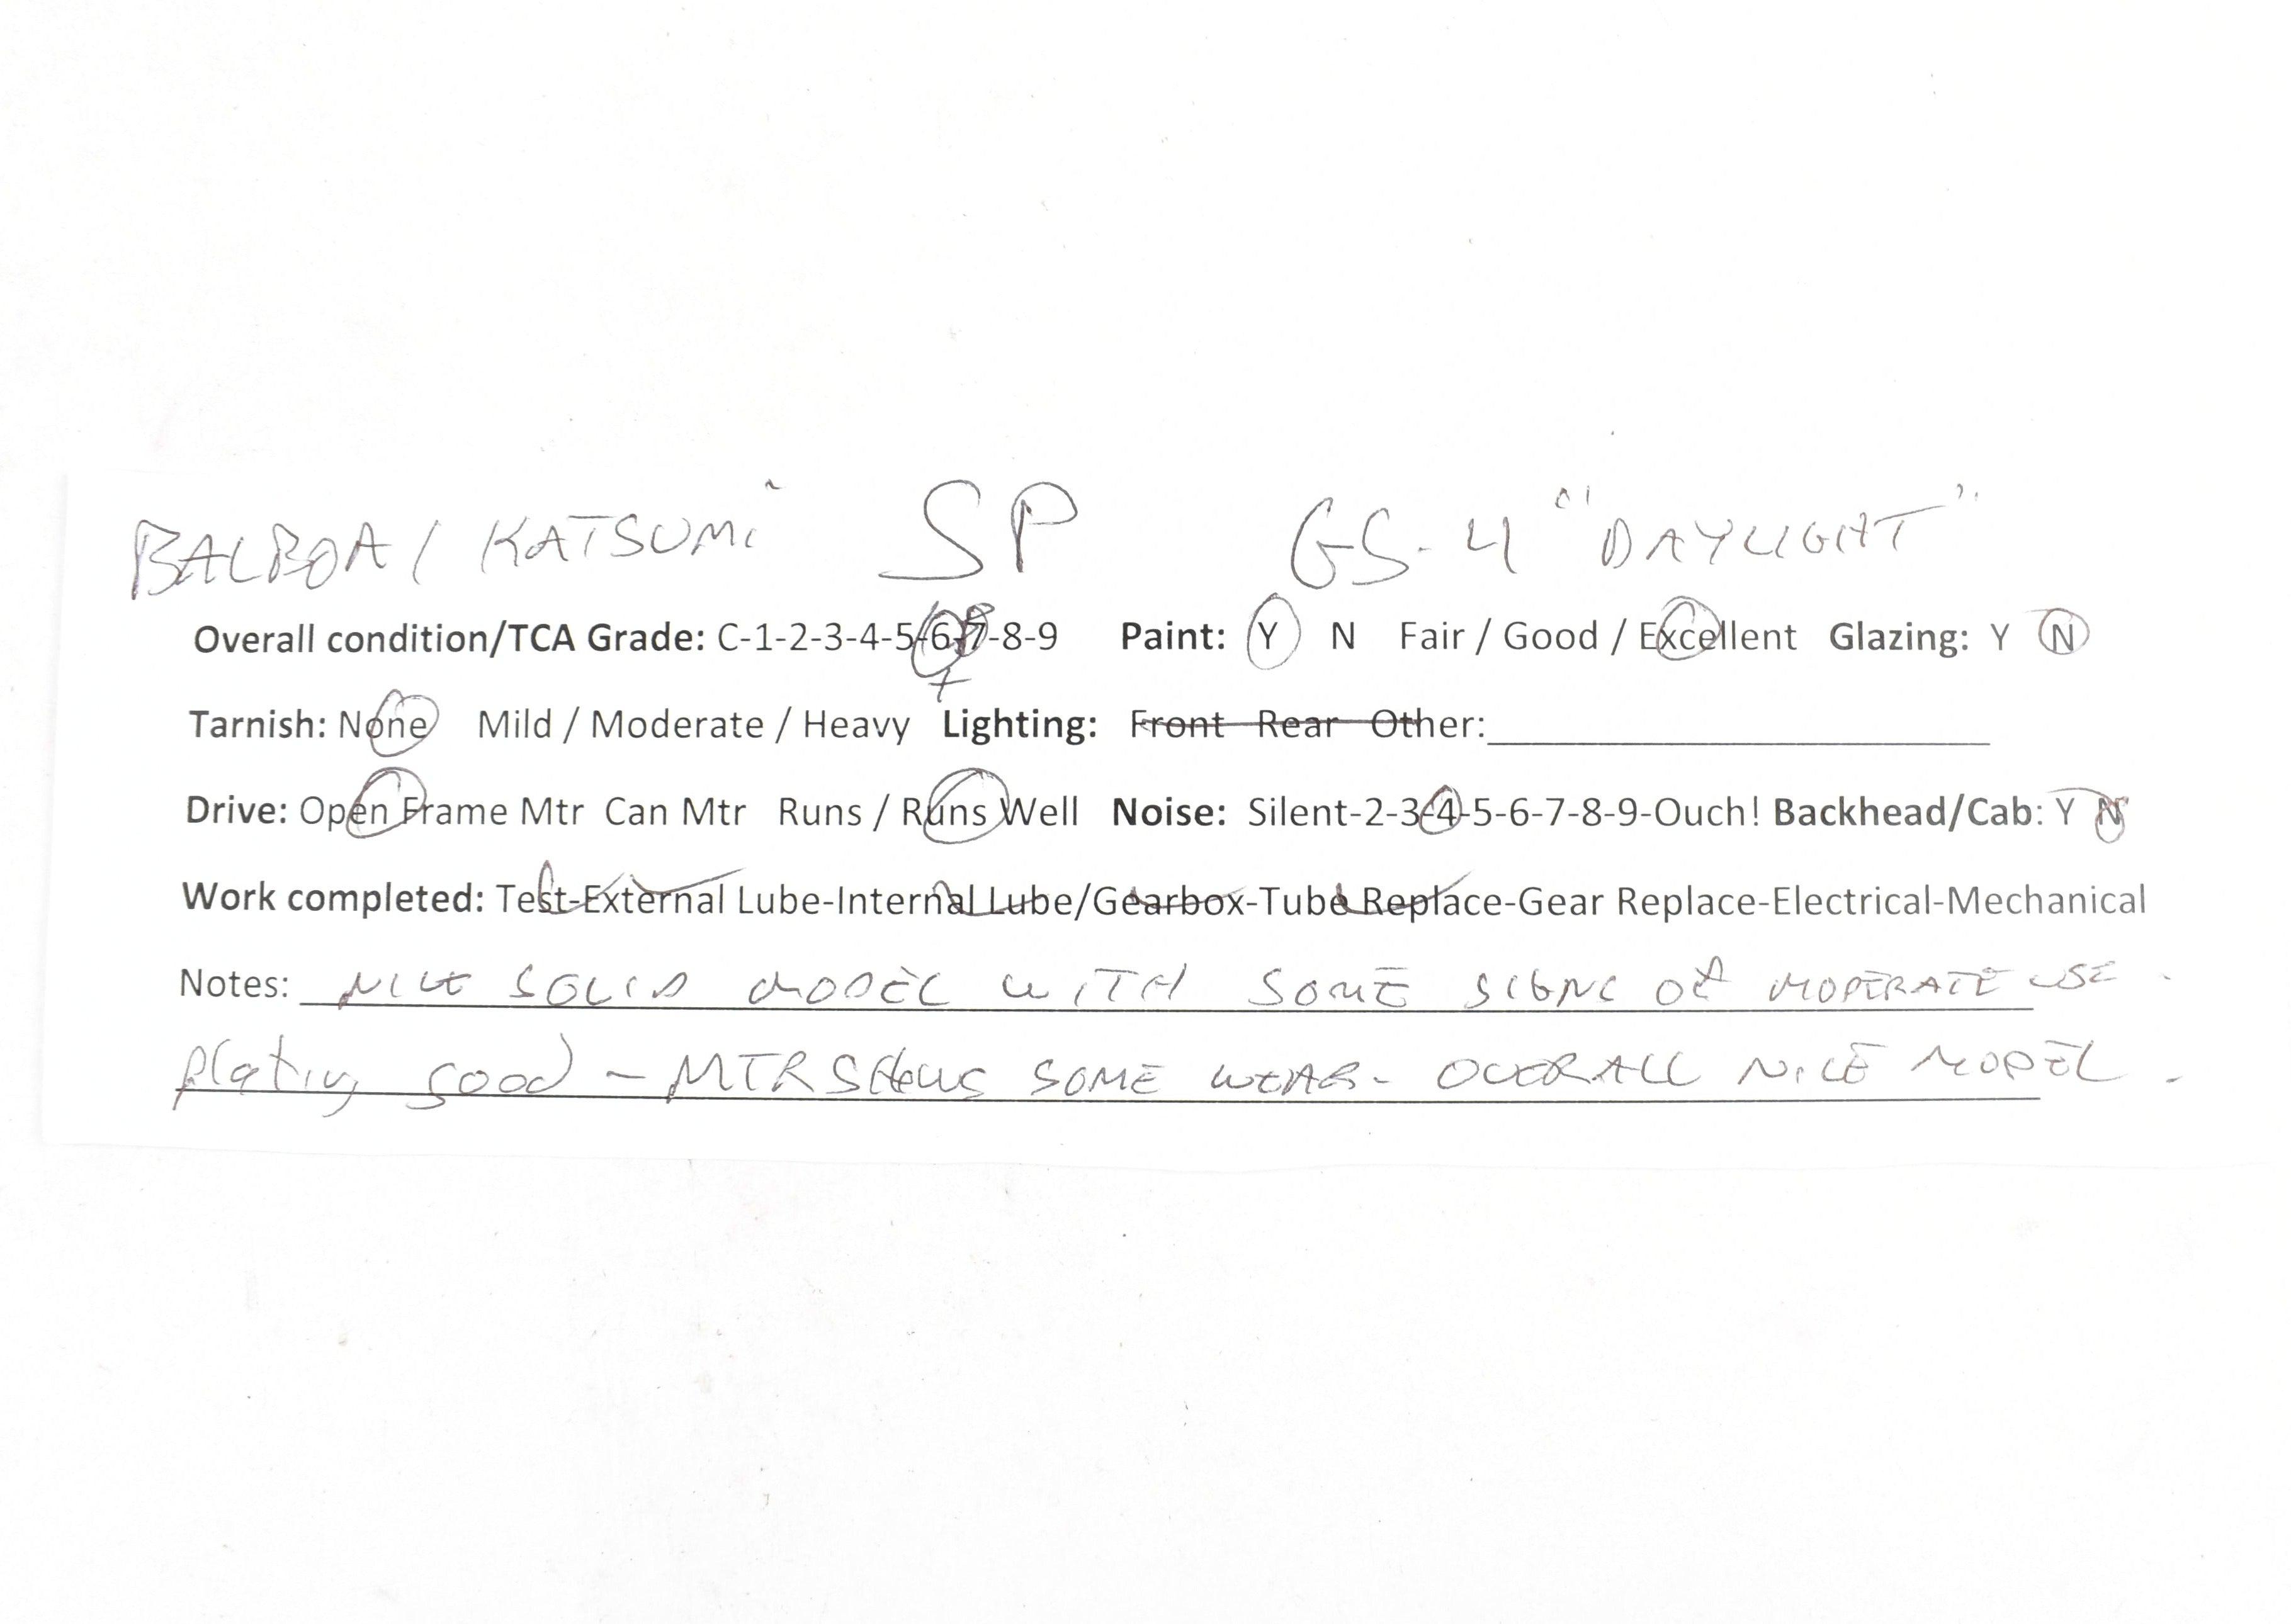 BALBOA / KATSUMI SP GS-4 "DAYLIGHT"
Overall condition/TCA Grade: C-1-2-3-4-5-6-7-8-9 Paint: Y N Fair / Good / Excellent Glazing: Y N
+
Tarnish: None Mild / Moderate / Heavy Lighting: Front Rear Other:
Drive: Open Frame Mtr Can Mtr Runs / Runs Well Noise: Silent-2-3-4-5-6-7-8-9-Ouch! Backhead/Cab: Y N
Work completed: Test-External Lube-Internal Lube/Gearbox-Tube Replace-Gear Replace-Electrical-Mechanical
Notes: NICE SOLID MODEL WITH SOME SIGNS OF MODERATE USE.
Plating good - MTR SHOWS SOME WEAR - OVERALL NICE MODEL.